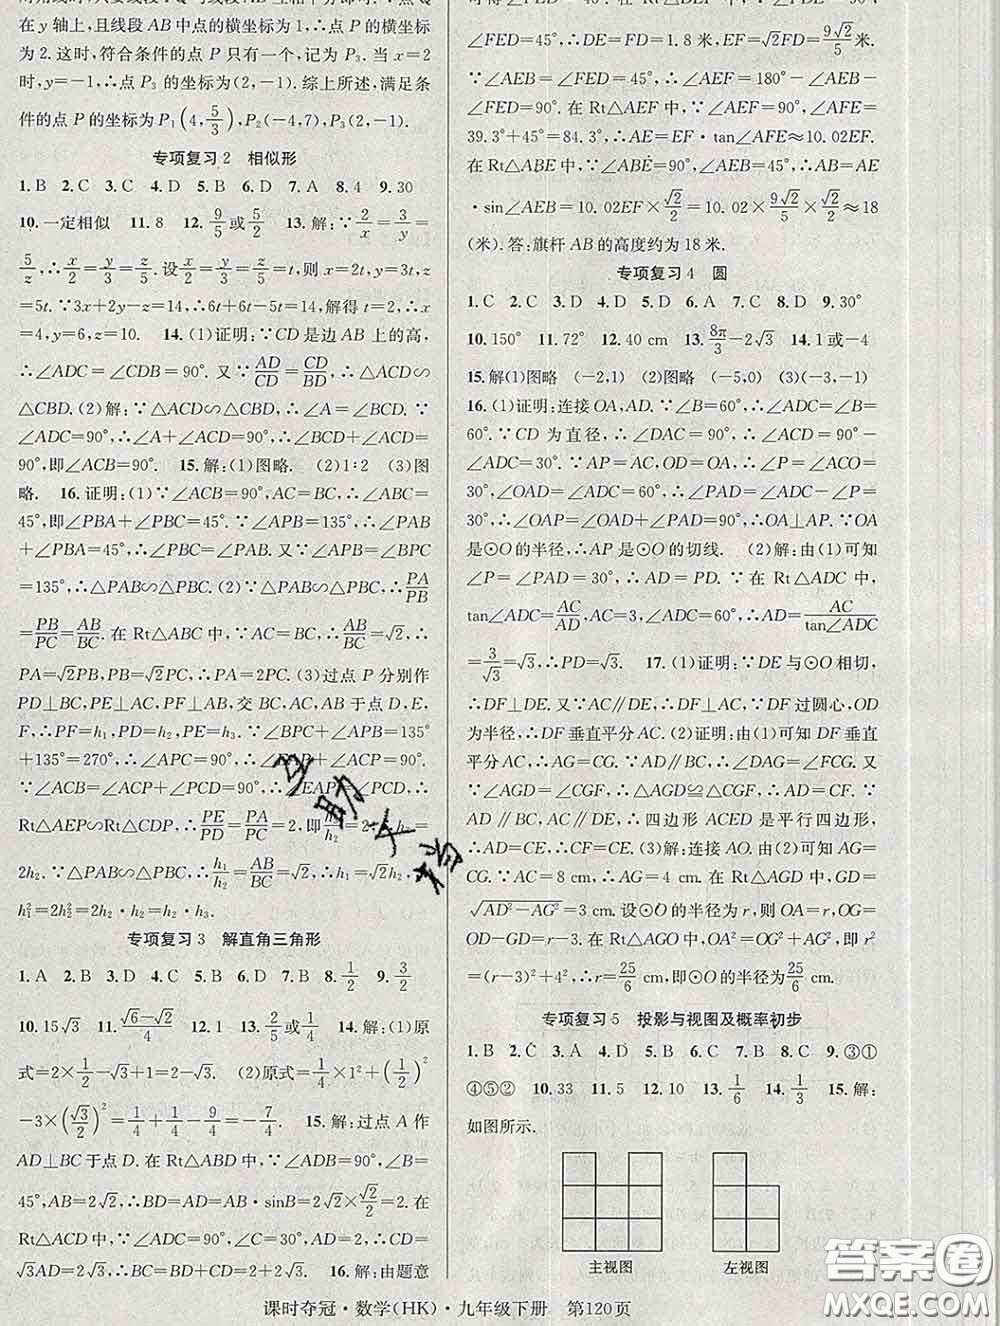 在 y 轴上,且线段 AB 中点的横坐标为1,∴点 P 的横坐标
为 2. 这时,符合条件的点 P 只有一个,记为 P₃. 当 x=2
时,y=-1,∴点 P₃ 的坐标为(2,-1). 综上所述,满足条
件的点 P 的坐标为 P₁(4,5/3),P₂(-4,7),P₃(2,-1).
专项复习2 相似形
1. B 2. C 3. C 4. D 5. B 6. D 7. A 8. 4 9. 30
10. 一定相似 11. 8 12. 9/5或5/2 13. 解:∵2/x=3/y=
5/z,∴x/2=y/3=z/5. 设x/2=y/3=z/5=t,则 x=2t,y=3t,z=
5t. ∵3x+2y-z=14,∴6t+6t-5t=14,解得 t=2,∴x
=4,y=6,z=10. 14. (1)证明:∵CD 是边 AB 上的高,
∴∠ADC=∠CDB=90°. 又∵AD/CD=CD/BD,∴△ACD∽
△CBD. (2)解:∵△ACD∽△CBD,∴∠A=∠BCD. ∵
∠ADC=90°,∴∠A+∠ACD=90°,∴∠BCD+∠ACD=
90°,即∠ACB=90°. 15. 解:(1)图略. (2)1∶2 (3)图
略. 16. 证明:(1)∵∠ACB=90°,AC=BC,∴∠ABC=
45°,即∠PBA+∠PBC=45°. ∵∠APB=135°,∴∠PAB
+∠PBA=45°,∴∠PBC=∠PAB. 又∵∠APB=∠BPC
=135°,∴△PAB∽△PBC. (2)∵△PAB∽△PBC,∴PA/PB
=PB/PC=AB/BC. 在 Rt△ABC 中,∵AC=BC,∴AB/BC=√2,∴
PA=√2PB,PB=√2PC,∴PA=2PC. (3)过点 P 分别作
PD⊥BC,PE⊥AC,PF⊥AB,交 BC,AC,AB 于点 D,E,
F,∴PF=h₁,PD=h₂,PE=h₃. ∵∠BPC+∠APB=135°
+135°=270°,∴∠APC=90°,∴∠EAP+∠ACP=90°.
∵∠ACP+∠PCD=90°,∴∠EAP=∠PCD,∴
Rt△AEP∽Rt△CDP,∴PE/PD=PA/PC=2. 即h₃/h₂=2,∴h₃=
2h₂. ∵△PAB∽△PBC,∴h₁/h₂=AB/BC=√2,∴h₁=√2h₂,∴
h₁²=2h₂²=2h₂·h₂=h₂·h₃.
专项复习3 解直角三角形
1. A 2. D 3. D 4. C 5. B 6. D 7. B 8. 1/2 9. 3/2
10. 15√3 11. (√6-√2)/4 12. 1 13. 2/5或1/4 14. 解:(1)原
式=2×1/2-√3+1=2-√3. (2)原式=1/4×1²+(1/2)²
-3×(√3/2)²=1/4+1/4-9/4=-7/4. 15. 解:过点 A 作
AD⊥BC 于点 D. 在 Rt△ABD 中,∠ADB=90°,∠B=
45°,AB=2√2,∴BD=AD=AB·sinB=2√2×√2/2=2. 在
Rt△ACD 中,∵∠ADC=90°,∠C=30°,AD=2,∴CD=
√3AD=2√3,∴BC=BD+CD=2+2√3. 16. 解:由题意
∠FED=45°,∴DE=FD=1.8 米,EF=√2FD=9√2/5米.
∵∠AEB=∠FED=45°,∴∠AEF=180°-∠AEB-
∠FED=90°. 在 Rt△AEF 中,∵∠AEF=90°,∠AFE=
39.3°+45°=84.3°,∴AE=EF·tan∠AFE≈10.02EF.
在 Rt△ABE 中,∵∠ABE=90°,∠AEB=45°,∴AB=AE
·sin∠AEB=10.02EF×√2/2=10.02×9√2/5×√2/2≈18
(米). 答:旗杆 AB 的高度约为 18 米.
专项复习4 圆
1. C 2. B 3. D 4. D 5. D 6. A 7. C 8. D 9. 30°
10. 150° 11. 72° 12. 40 cm 13. 8π/3-2√3 14. 1或-4
15. 解(1)图略 (-2,1) (2)图略 (-5,0) (3)(-3,-1)
16. (1)证明:连接 OA,AD. ∵∠B=60°,∴∠ADC=∠B=
60°. ∵CD 为直径,∴∠DAC=90°,∴∠ACO=90°-
∠ADC=30°. ∵AP=AC,OD=OA,∴∠P=∠ACO=
30°,∠OAD=∠ADC=60°,∴∠PAD=∠ADC-∠P=
30°,∴∠OAP=∠OAD+∠PAD=90°,∴OA⊥AP. ∵OA
是⊙O 的半径,∴AP 是⊙O 的切线. (2)解:由(1)可知
∠P=∠PAD=30°,∴AD=PD. ∵在 Rt△ADC 中,
tan∠ADC=AC/AD,AC=3,∠ADC=60°,∴AD=AC/tan∠ADC
=3/√3=√3,∴PD=√3. 17. (1)证明:∵DE 与⊙O 相切,
∴DF⊥DE. ∵AC∥DE,∴DF⊥AC. ∵DF 过圆心,OD
为半径,∴DF 垂直平分 AC. (2)证明:由(1)可知 DF 垂直
平分 AC,∴AG=GC. 又∵AD∥BC,∴∠DAG=∠FCG.
又∵∠AGD=∠CGF,∴△AGD≌△CGF,∴AD=CF. ∵
AD∥BC,AC∥DE,∴四边形 ACED 是平行四边形,
∴AD=CE,∴CF=CE. (3)解:连接 AO. 由(2)可知 AG=
CG. ∵AC=8 cm,∴AG=4 cm. 在 Rt△AGD 中,GD=
√(AD²-AG²)=3 cm. 设⊙O 的半径为 r,则 OA=r,OG=
r-3. 在 Rt△AGO 中,OA²=OG²+AG²,即 r²
=(r-3)²+4²,∴r=25/6 cm,即⊙O 的半径为25/6 cm.
专项复习5 投影与视图及概率初步
1. B 2. C 3. A 4. D 5. D 6. B 7. B 8. C 9. ③①
④⑤② 10. 33 11. 5 12. 10 13. 1/6 14. 1/3 15. 解:
如图所示.
主视图 左视图
课时夺冠·数学(HK)·九年级下册 第120页
互助文档
答案圈
MXQE.COM